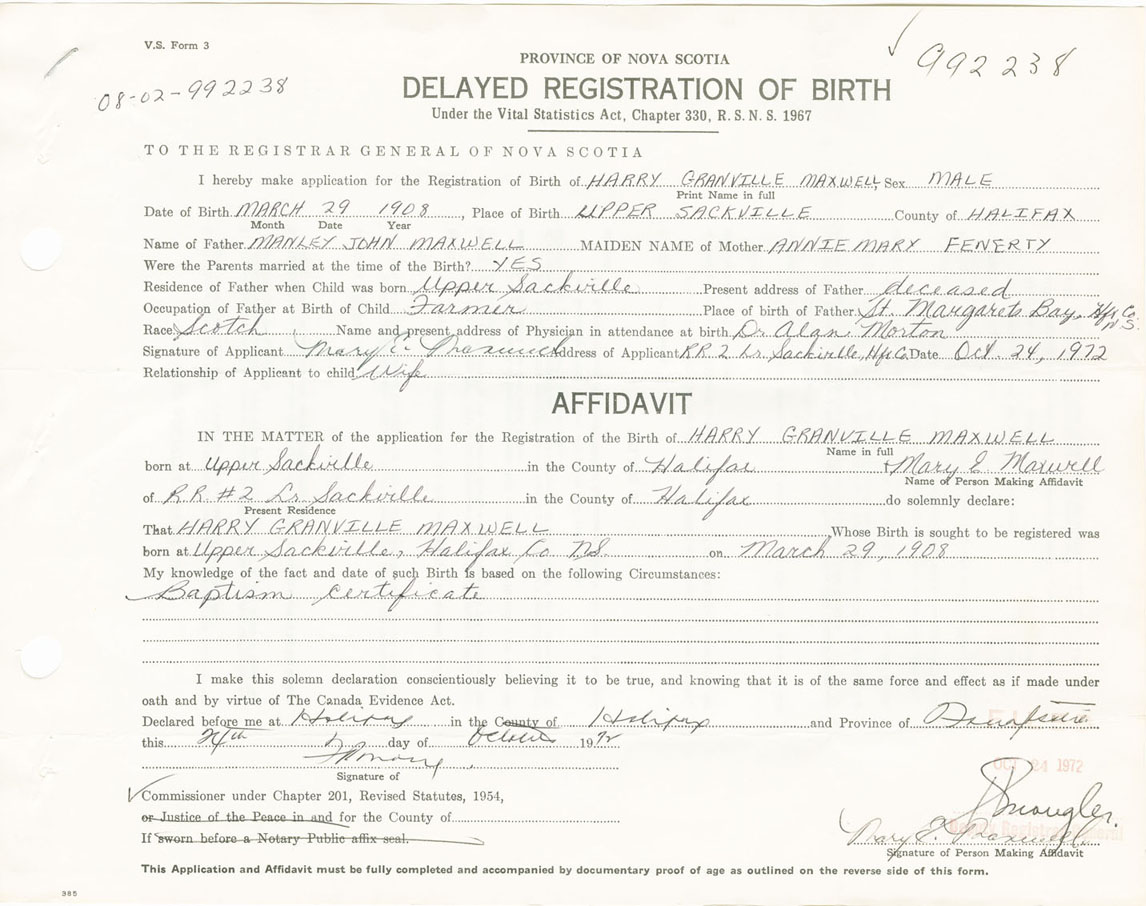 V.S. Form 3
992238
08-02-992238
PROVINCE OF NOVA SCOTIA
DELAYED REGISTRATION OF BIRTH
Under the Vital Statistics Act, Chapter 330, R.S.N.S. 1967
TO THE REGISTRAR GENERAL OF NOVA SCOTIA
I hereby make application for the Registration of Birth of HARRY GRANVILLE MAXWELL, Sex MALE
Print Name in full
Date of Birth MARCH 29 1908, Place of Birth UPPER SACKVILLE County of HALIFAX
Month Date Year
Name of Father MANLEY JOHN MAXWELL MAIDEN NAME of Mother ANNIE MARY FENERTY
Were the Parents married at the time of the Birth? YES
Residence of Father when Child was born Upper Sackville Present address of Father deceased
Occupation of Father at Birth of Child Farmer Place of birth of Father St. Margarets Bay, Hfx Co. N.S.
Race Scotch Name and present address of Physician in attendance at birth Dr. Alan Morton
Signature of Applicant Mary E. Maxwell Address of Applicant R.R. 2 Lr. Sackville, Hfx Co. Date Oct. 24, 1972
Relationship of Applicant to child Wife
AFFIDAVIT
IN THE MATTER of the application for the Registration of the Birth of HARRY GRANVILLE MAXWELL
Name in full
born at Upper Sackville in the County of Halifax Mary E. Maxwell
Name of Person Making Affidavit
of R.R. #2 Lr. Sackville in the County of Halifax do solemnly declare:
Present Residence
That HARRY GRANVILLE MAXWELL, Whose Birth is sought to be registered was
born at Upper Sackville, Halifax Co. N.S. on March 29, 1908
My knowledge of the fact and date of such Birth is based on the following Circumstances:
Baptism Certificate
I make this solemn declaration conscientiously believing it to be true, and knowing that it is of the same force and effect as if made under
oath and by virtue of The Canada Evidence Act.
Declared before me at Halifax in the County of Halifax and Province of Nova Scotia
this 24th day of October 1972
Signature of
OCT 24 1972
Commissioner under Chapter 201, Revised Statutes, 1954,
or Justice of the Peace in and for the County of
If sworn before a Notary Public affix seal.
Mary E. Maxwell
Signature of Person Making Affidavit
This Application and Affidavit must be fully completed and accompanied by documentary proof of age as outlined on the reverse side of this form.
385